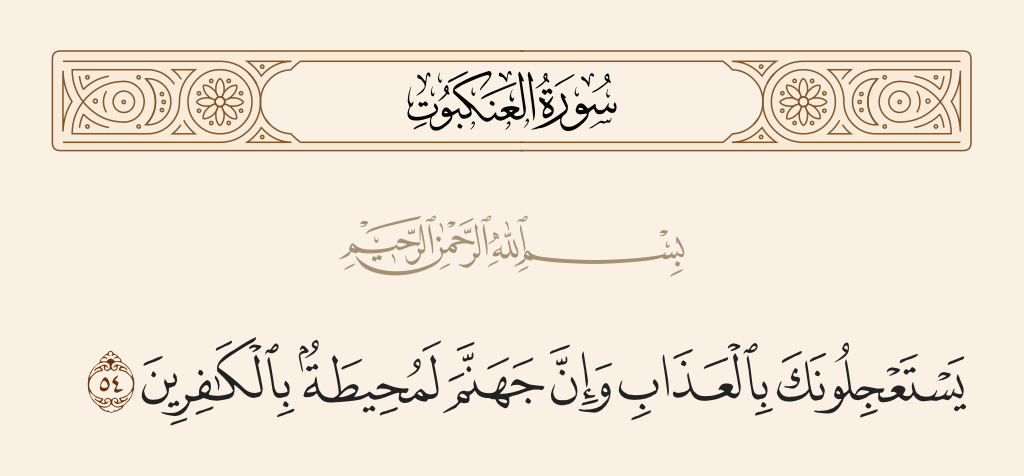 سُورَةُ العَنكَبُوتِ
بِسْمِ ٱللَّهِ ٱلرَّحْمَٰنِ ٱلرَّحِيمِ
يَسْتَعْجِلُونَكَ بِٱلْعَذَابِ وَإِنَّ جَهَنَّمَ لَمُحِيطَةٌۢ بِٱلْكَـٰفِرِينَ ٥٤